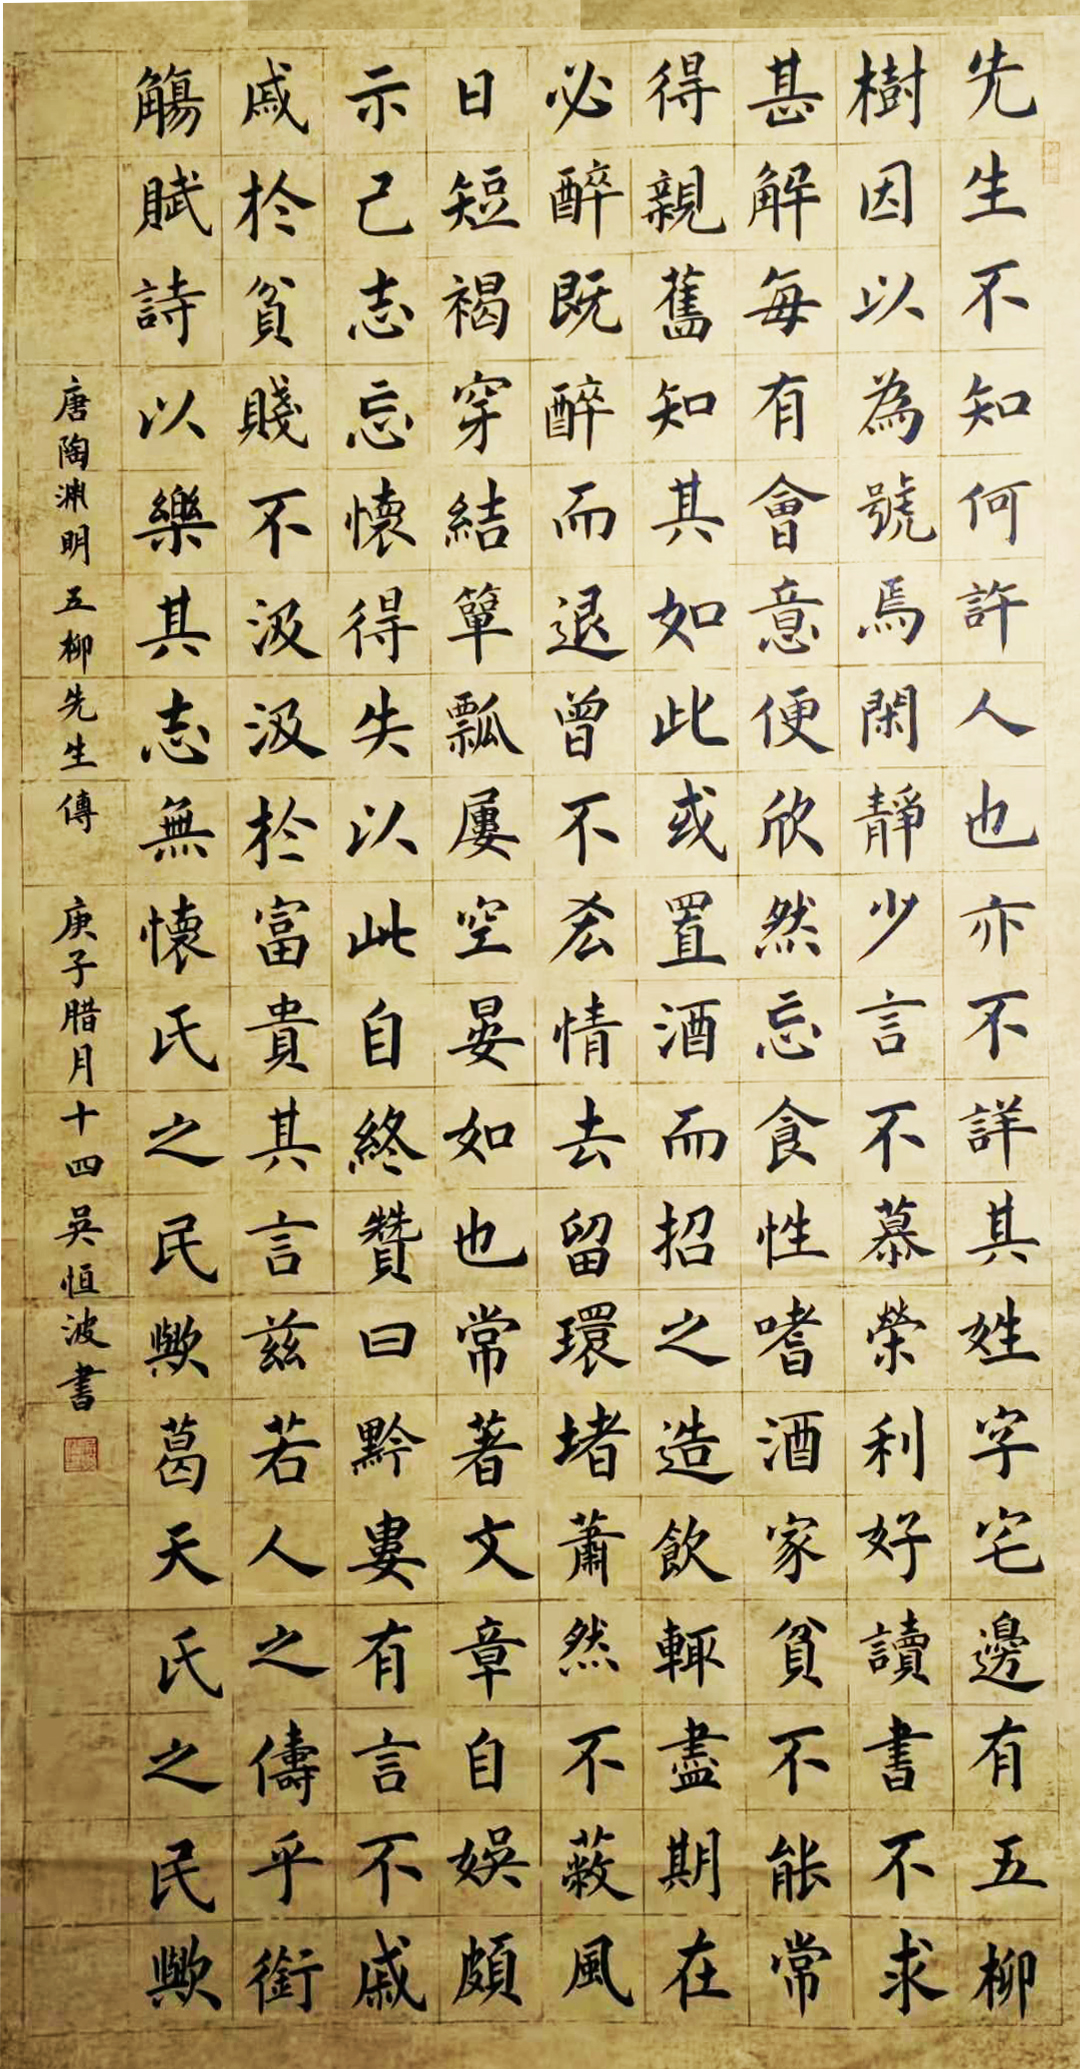 先生不知何許人也亦不詳其姓字宅邊有五柳
樹因以為號焉閑靜少言不慕榮利好讀書不求
甚解每有會意便欣然忘食性嗜酒家貧不能常
得親舊知其如此或置酒而招之造飲輒盡期在
必醉既醉而退曾不吝情去留環堵蕭然不蔽風
日短褐穿結簞瓢屢空晏如也常著文章自娛頗
示己志忘懷得失以此自終贊曰黔婁有言不戚
戚於貧賤不汲汲於富貴其言茲若人之儔乎銜
觴賦詩以樂其志無懷氏之民歟葛天氏之民歟
唐陶渊明五柳先生傳 庚子腊月十四吳恒波書